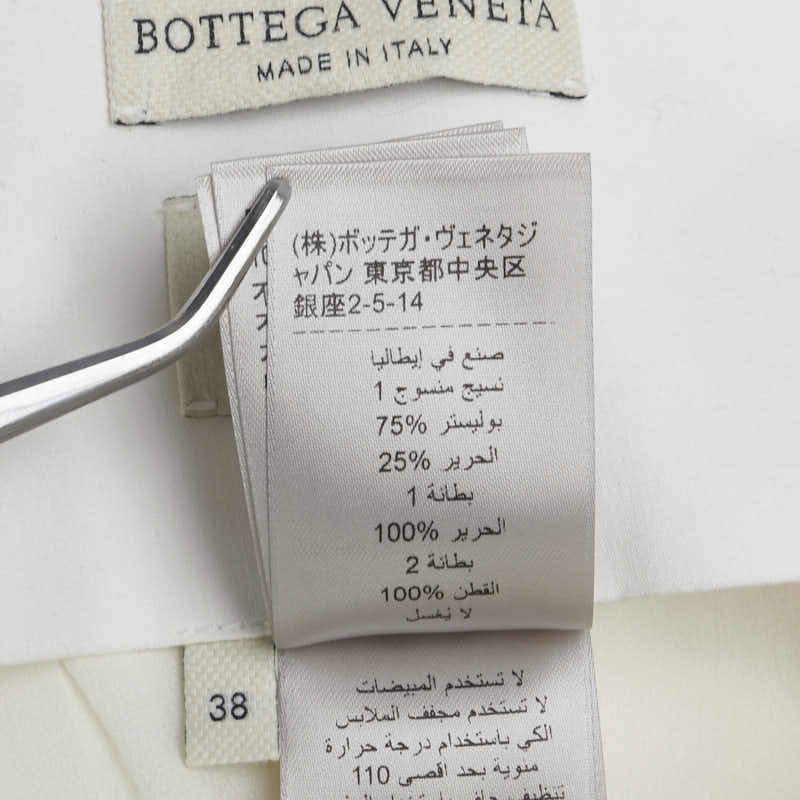 BOTTEGA VENETA
MADE IN ITALY
(株)ボッテガ・ヴェネタジ
ャパン 東京都中央区
銀座2-5-14
صنع في إيطاليا
نسيج منسوج 1
بوليستر 75%
الحرير 25%
بطانة 1
الحرير 100%
بطانة 2
القطن 100%
لا يُغسل
38
لا تستخدم المبيضات
لا تستخدم مجفف الملابس
الكي باستخدام درجة حرارة
مئوية بحد اقصى 110